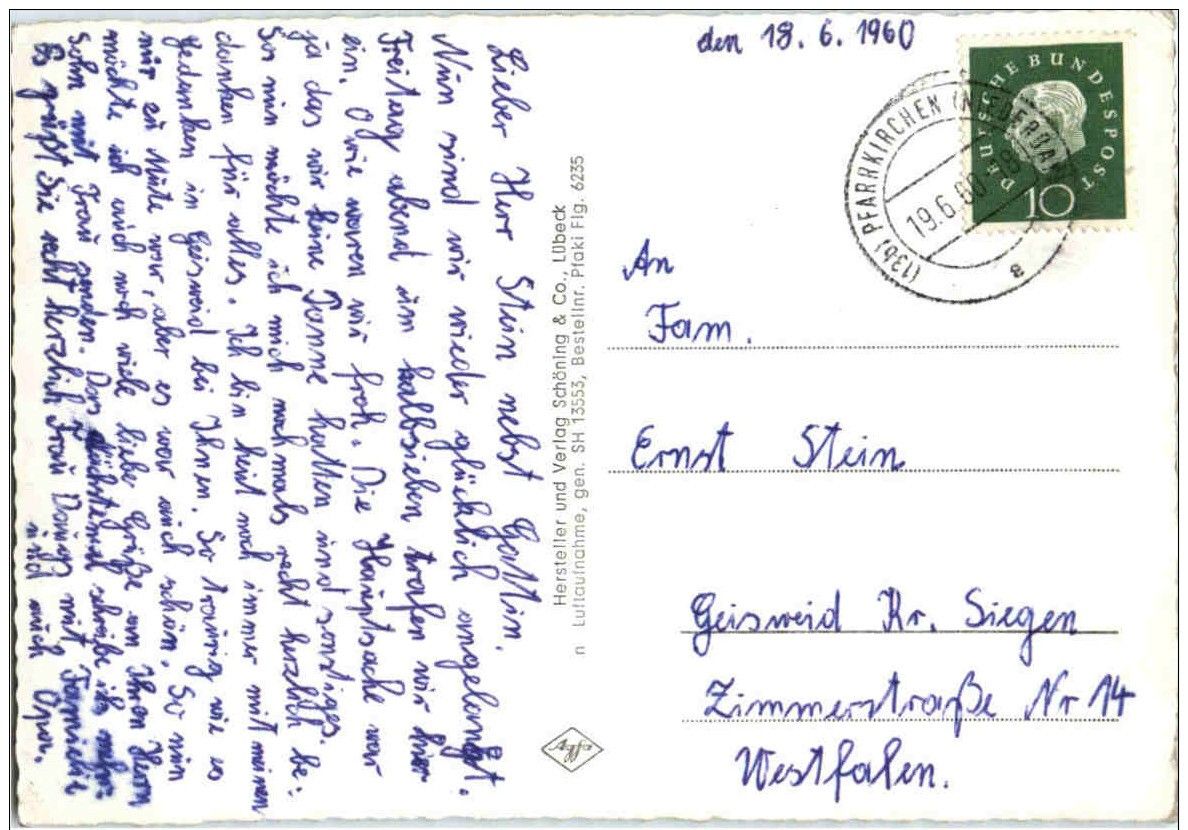 den 18. 6. 1960
Lieber Herr Stein nebst Gattin.
Nun sind wir wieder glücklich angelangt.
Freitag abend um halbsieben trafen wir hier
ein. O wie waren wir froh. Die Hauptsache war
ja das wir keine Panne hatten und sonstiges.
So nun möchte ich mich nochmals recht herzlich be=
danken für alles. Ich bin heut noch immer mit meinen
Gedanken in Geisweid bei Ihnen. So traurig wie es
mir zu Mute war, aber es war auch schön. So nun
möchte ich auch noch viele liebe Grüße an Ihren Herrn
Sohn mit Frau senden. Das nächstemal schreibe ich mehr.
Es grüßt Sie recht herzlich Frau mit Familie
und auch Opa.
Hersteller und Verlag Schöning & Co., Lübeck
n Luftaufnahme, gen. SH 13553, Bestellnr. Pfaki Flg. 6235
Agfa
DEUTSCHE BUNDESPOST
10
(13b) PFARRKIRCHEN (NIEDERBAY
19.6.60-18
a
An
Fam.
Ernst Stein
Geisweid Kr. Siegen
Zimmerstraße Nr 14
Westfalen.